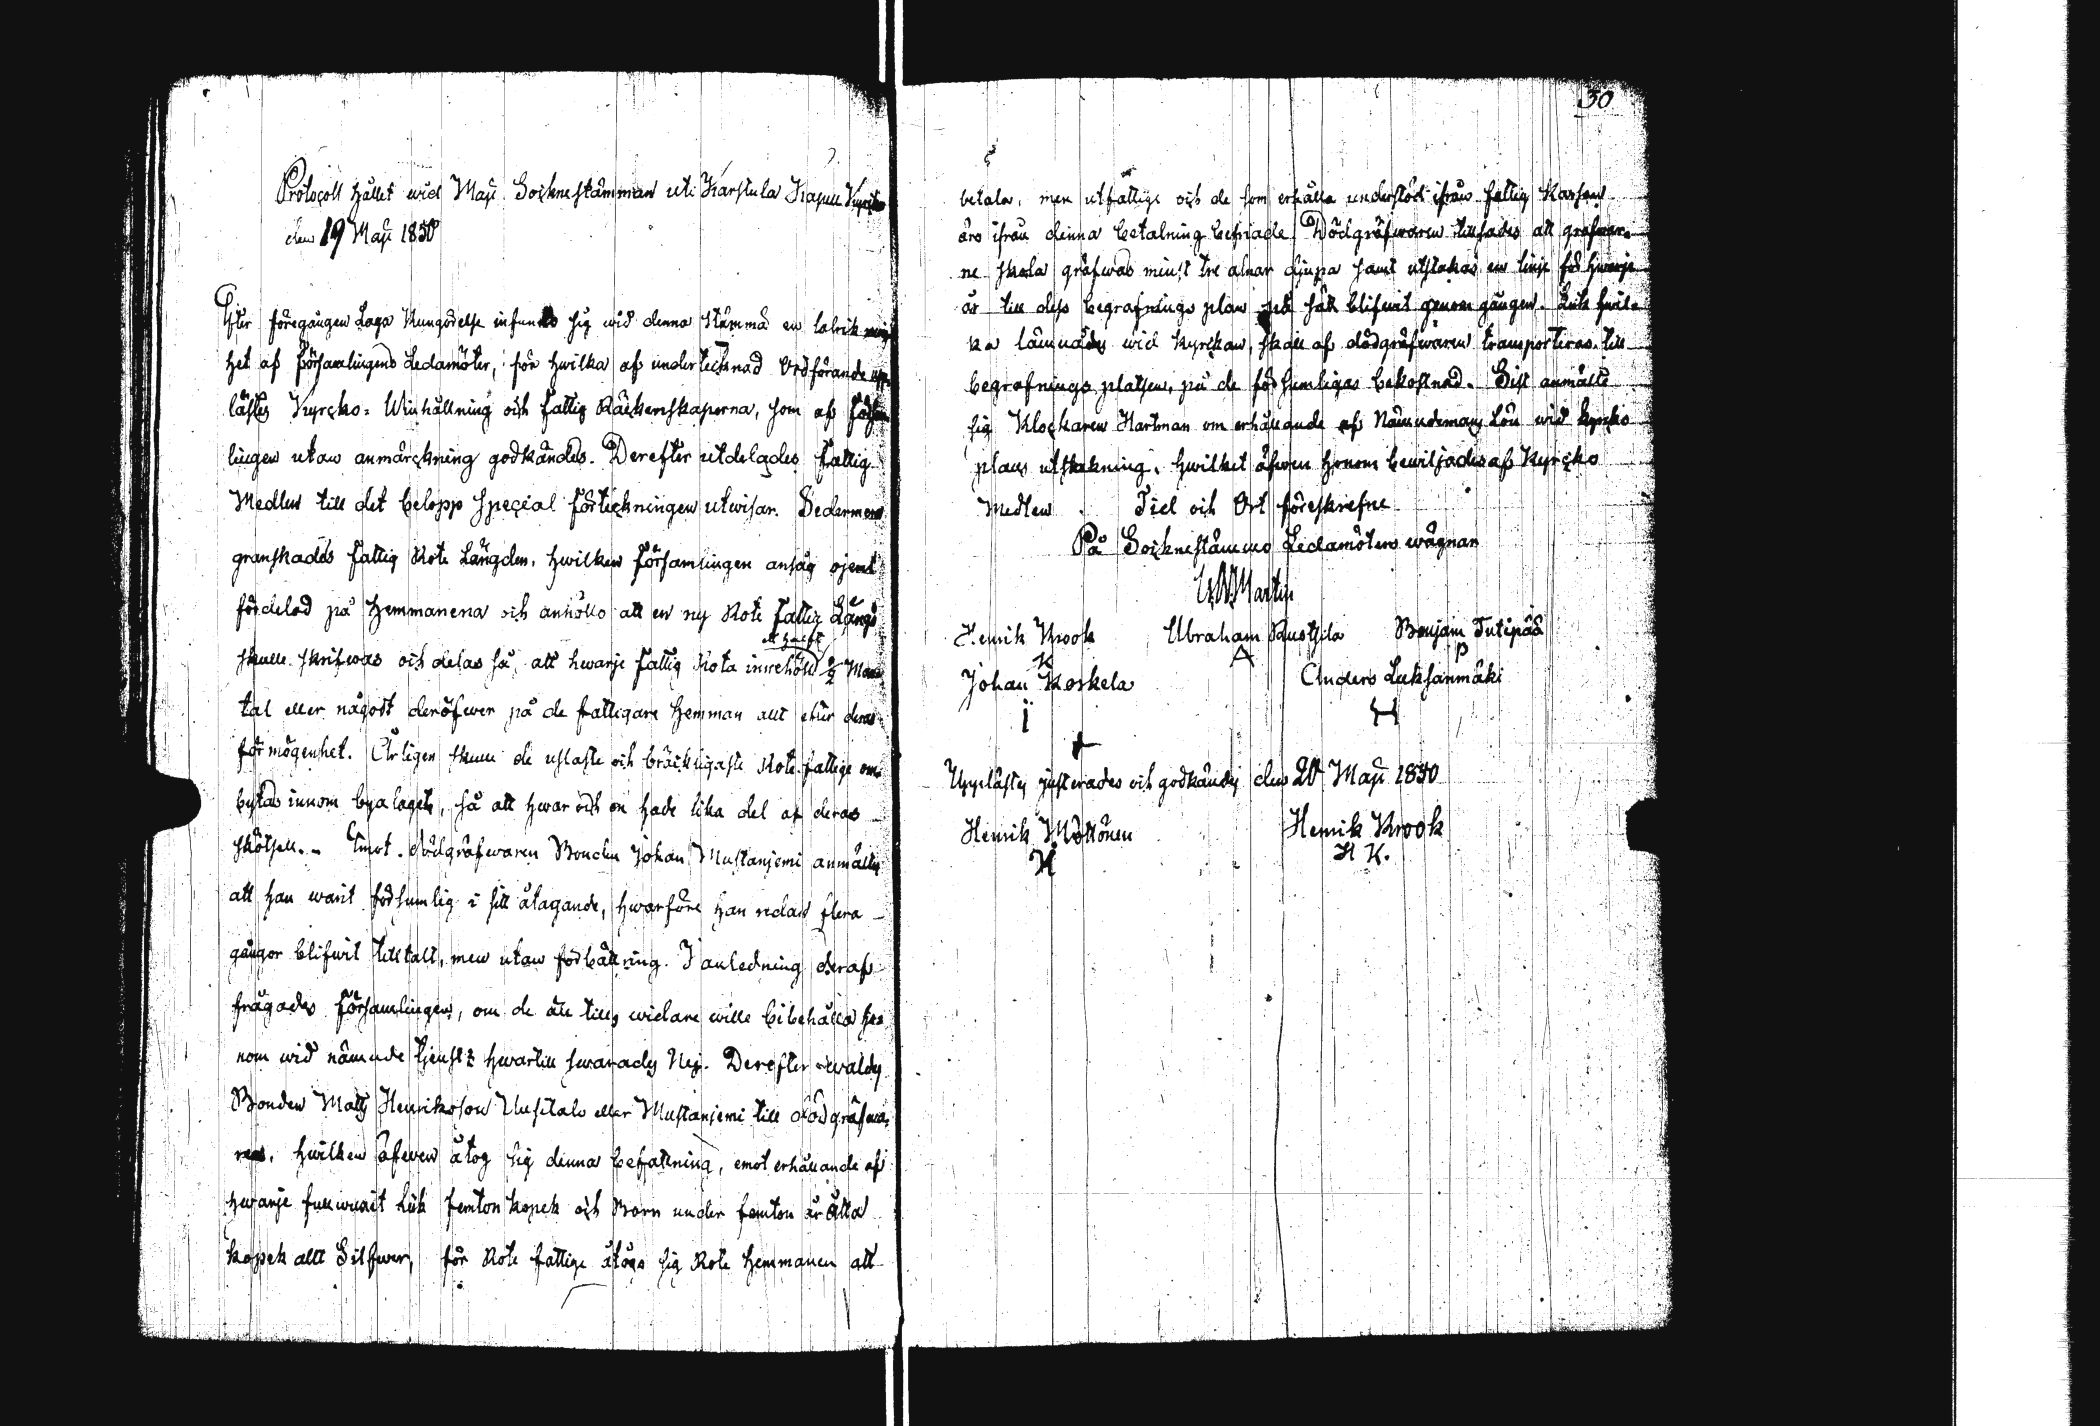 Protocoll hållet wid Maji Socknestämman uti Karstula Kapell Kyrcka
den 19 Maji 1850
Efter föregången Laga Kungörelse infunno sig wid denna stämma en talrik mäng
het af Församlingens Ledamöter, för hwilka af undertecknad Ordförande upp-
lästes Kyrcko- Winhållning och Fattig Räkenskaperna, som af Försam
lingen utan anmärckning godkändes. Derefter utdelades Fattig
Medlen till det belopp Special Förteckningen utwisar. Sedermera
granskades Fattig Rote Längden, hwilken Församlingen ansåg ojemt
fördelad på Hemmanena och anhöllo att en ny Rote Fattig Längd
skulle skrifwas och delas så att hwarje Fattig Rota innehöll Man
tal eller något deröfwer på de fattigare Hemman allt efter deras
förmögenhet. Årligen skulle de uslaste och bräckligaste Rote fattige om-
bytas innom byalaget, så att hwar och en hade lika del af deras
skötsell. Emot dödgräfwaren Bonden Johan Mustaniemi anmältes
att han warit försumlig i sitt åtagande, hwarföre han redan flera
gångor blifwit tilltalt, men utan förbättring. I anledning deraf
frågades Församlingen, om de än widare wille bibehålla ho
nom wid nämnde tjenst? hwartill swarades Nej. Derefter waldes
Bonden Matts Henriksson Uusitalo eller Mustaniemi till dödgräfwa-
re, hwilken äfwen åtog sig denna befattning, emot erhållande af
hwarje fullwuxit Lik femton kopek och Barn under femton år Åtta
kopek allt Silfwer, för Rote fattige åtogo sig Rote Hemmanen att
30
betala, men utfattige och de som erhålla understöd ifrån fattig Kassan
äro ifrån denna betalning befriade. Dödgräfwaren tillsades att grafwar-
ne skola gräfwas minst tre alnar djupa samt utstakas en linje för hwarje
år till dess begrafnings plan på sätt blifwit genom gången. Lik hwil-
ka lämnades wid Kyrckan, skall af dödgräfwaren transporteras till
begrafnings platsen, på de försumligas bekostnad. Sist anmälte
sig Klockaren Hartman om erhållande af Nämndemans Lön wid kyrcko
plans utstakning, hwilket äfwen honom bewiljades af Kyrcko
Medlen. Tid och Ort föreskrefne
På Sockneståmmo Ledamöters wägnar
Martin
Henrik Krook Abraham Ruotsila Benjam Tutipää
K A P
Johan Koskela Anders Luksanmäki
I H
Upplästes justerades och godkändes den 20 Maji 1850
Henrik Möttönen Henrik Krook
K H K.